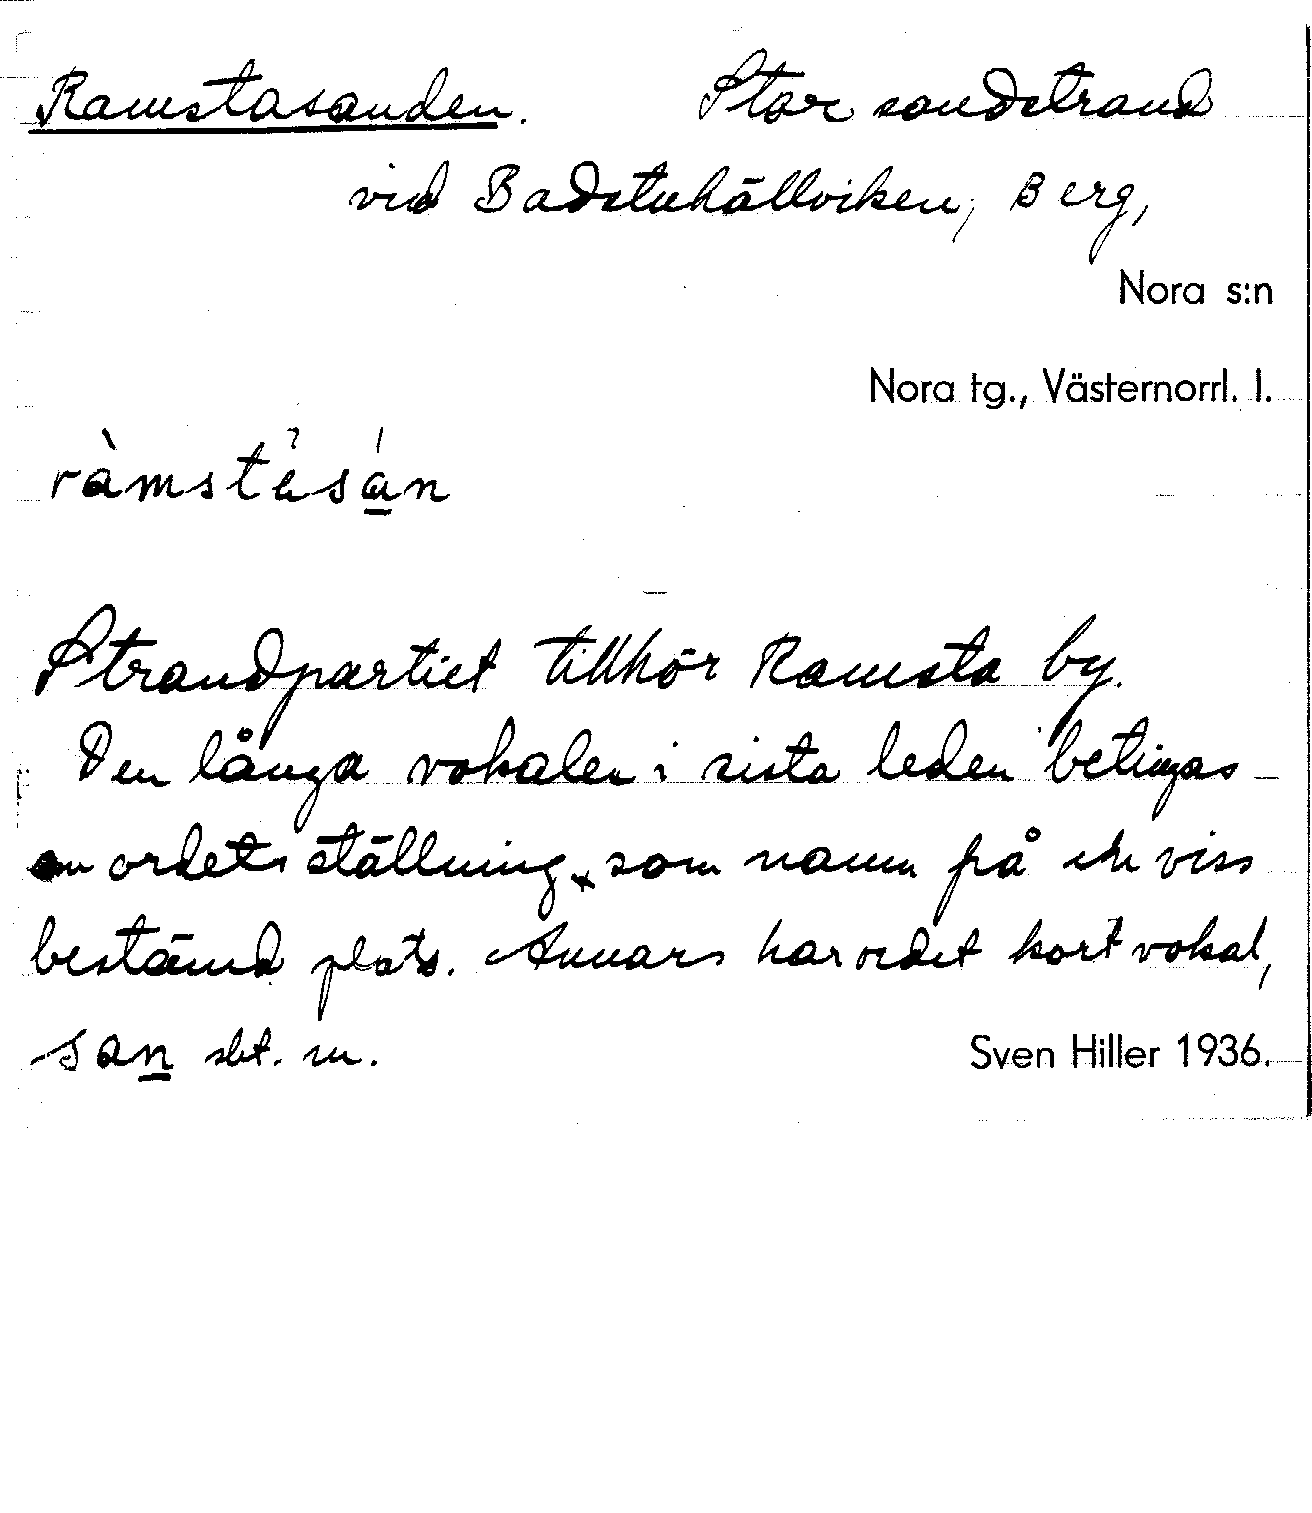 Ramstasanden. Stor sandstrand
vid Badstuhällviken, Berg,
Nora s:n
Nora tg., Västernorrl. l.
ràmstèsán
Strandpartiet tillhör Ramsta by.
Den långa vokalen i sista leden betingas
av ordets ställning som namn på en viss
bestämd plats. Annars har ordet kort vokal,
san sbt. m.
Sven Hiller 1936.